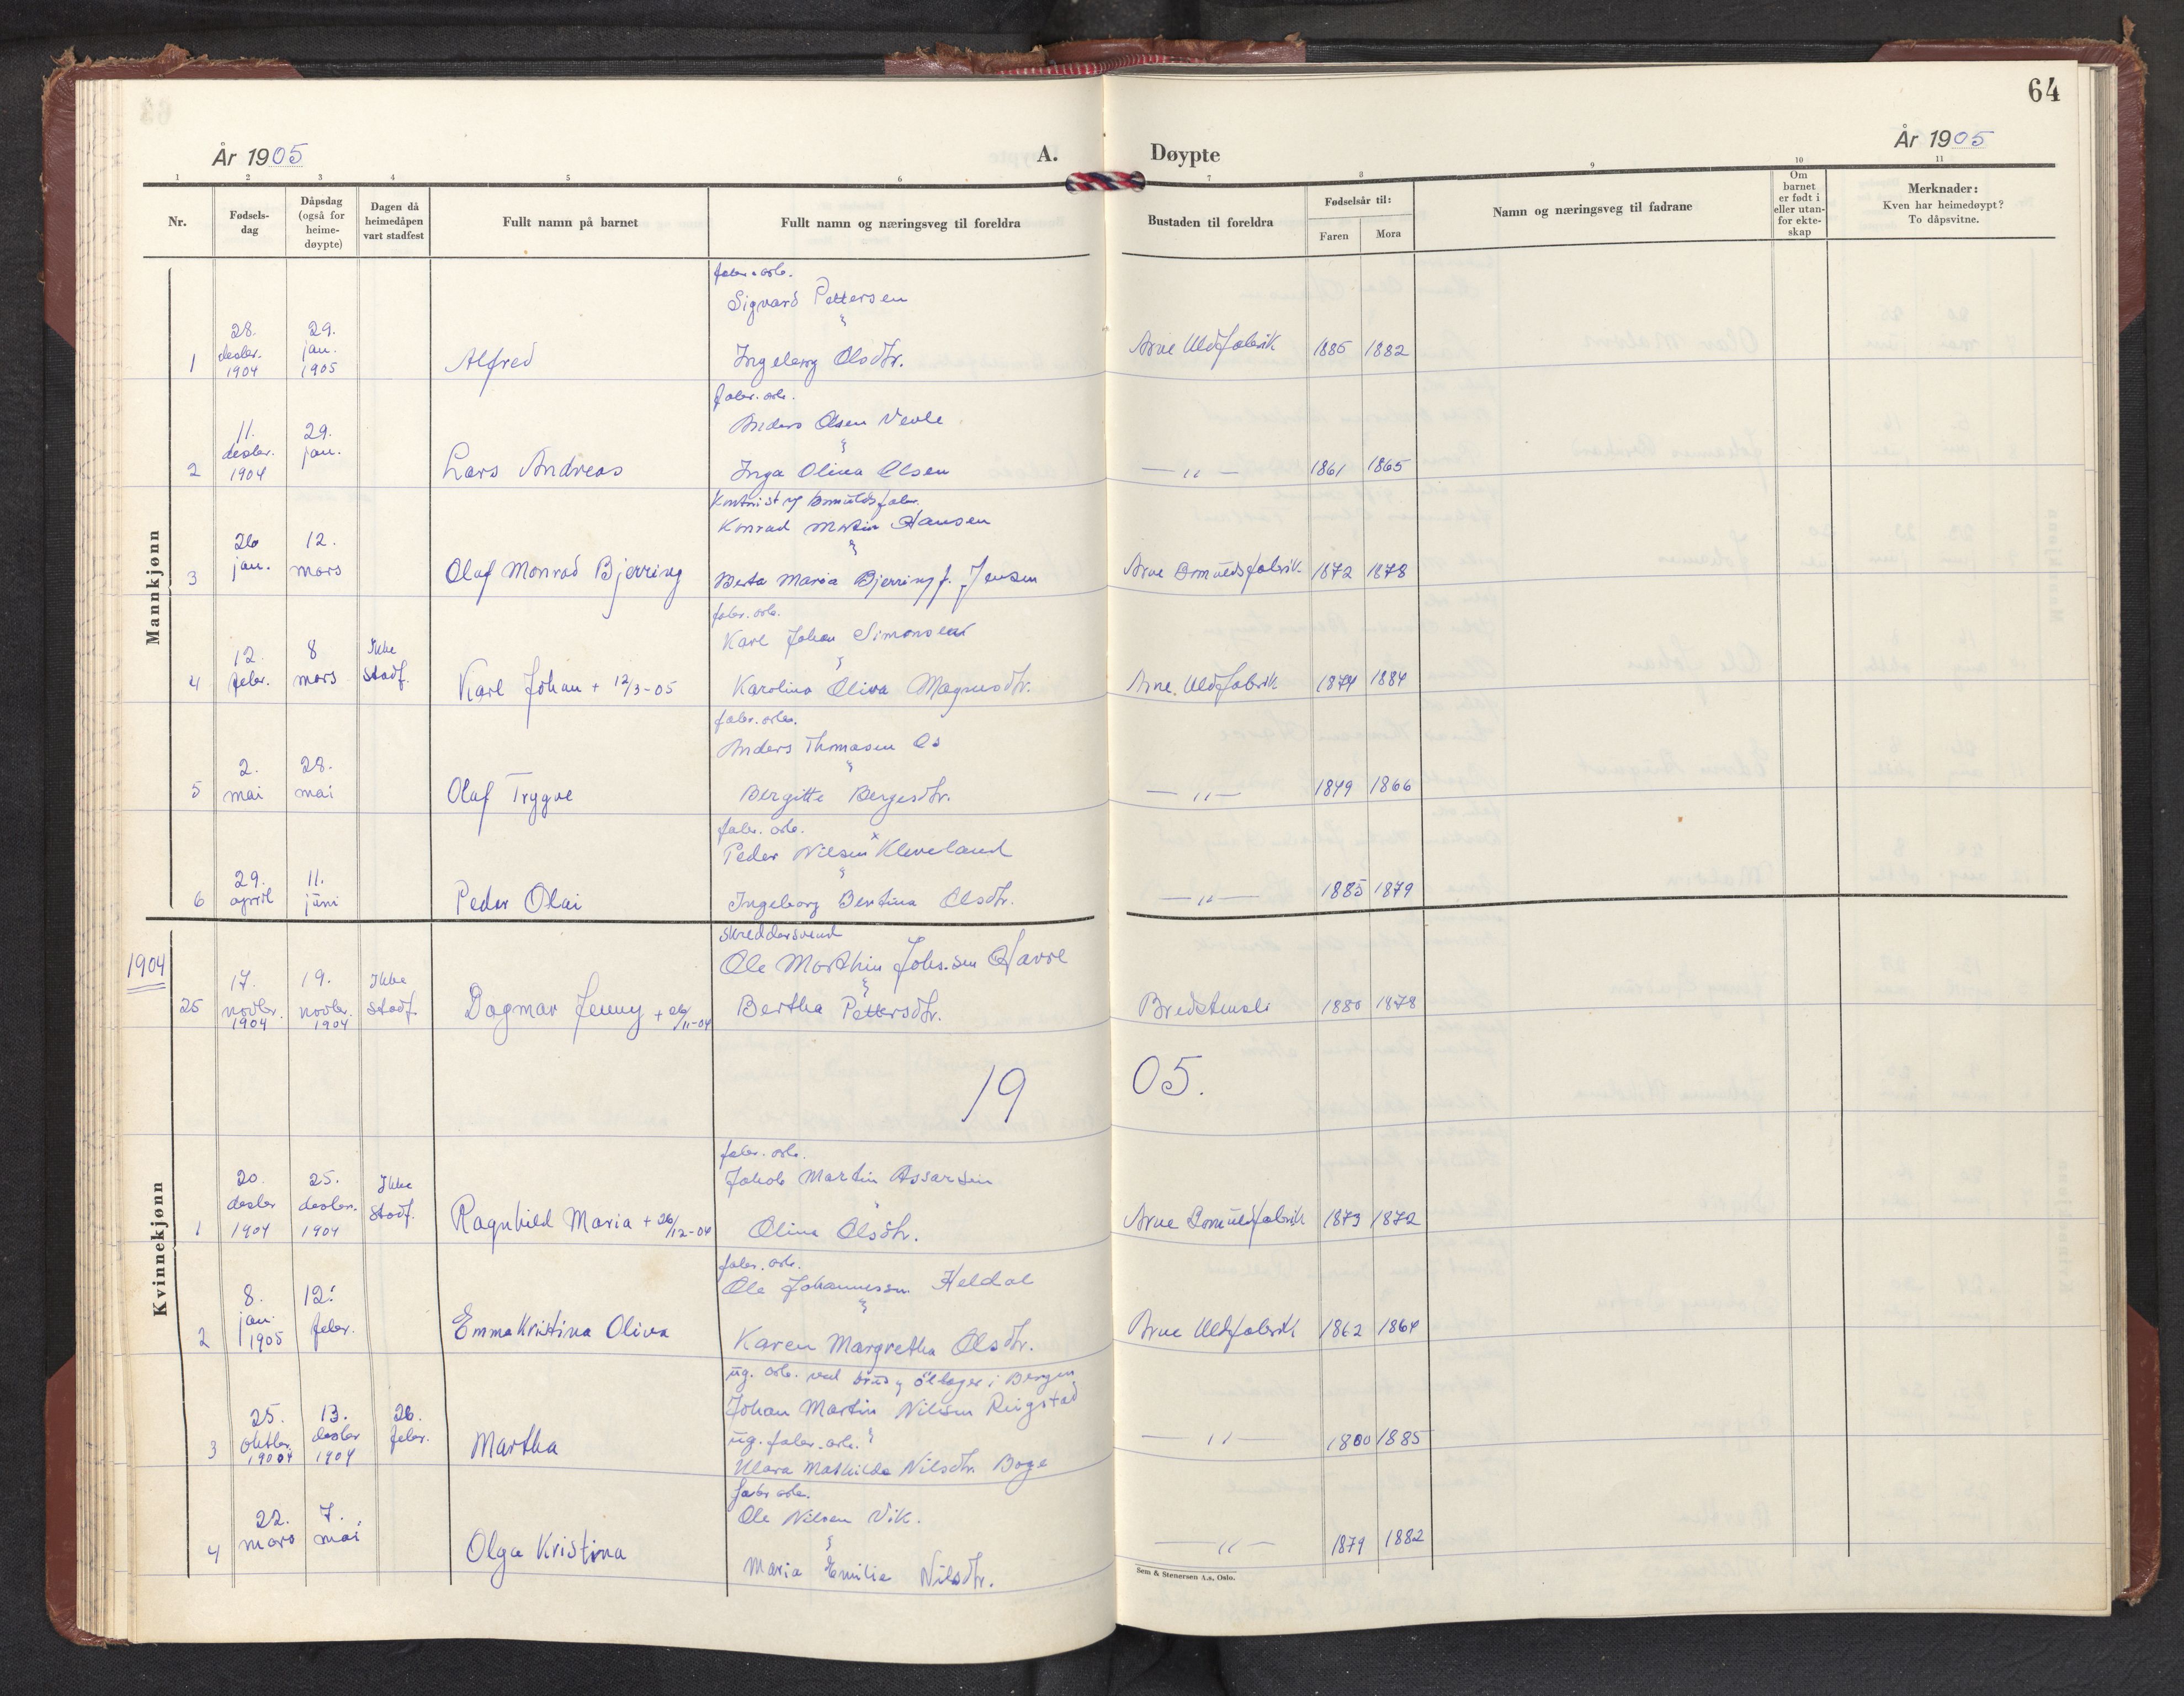 64
År 1905
A.
Døypte
År 1905
1 2 3 4 5 6 7 8 9 10 11
Nr.
Fødsels-
dag
Dåpsdag
(også for
heime-
døypte)
Dagen då
heimedåpen
vart stadfest
Fullt namn på barnet
Fullt namn og næringsveg til foreldra
Bustaden til foreldra
Fødselsår til:
Faren
Mora
Namn og næringsveg til fadrane
Om
barnet
er født i
eller utan-
for ekte-
skap
Merknader:
Kven har heimedøypt?
To dåpsvitne.
Mannkjønn
fabr. arb.
Sigvard Pettersen
1 28. desbr. 1904 29. jan. 1905 Alfred Ingeborg Olsdtr. Arne Uldfabrik 1885 1882
fabr. arb.
Anders Olsen Vevle
2 11. desbr. 1904 29. jan. Lars Andreas Inga Olina Olsen — " — 1861 1865
Kontorist v/ bomuldsfabr.
Konrad Martin Hansen
3 26 jan. 12. mars Olaf Monrad Bjerring Berta Maria Bjerring f. Jensen Arne Bomuldsfabrik 1872 1878
fabr. arb.
Karl Johan Simonsen
4 12. febr. 8 mars Ikke stadf. Karl Johan + 12/3-05 Karolina Oliva Magnusdtr. Arne Uldfabrik 1874 1884
fabr. arb.
Anders Thomasen Os
5 2. mai 28. mai Olaf Trygve Bergitte Bergesdtr. — " — 1879 1866
fabr. arb.
Peder Nilsen x Kleveland
6 29. april 11. juni Peder Olai Ingeborg Bertina Olsdtr. — " — 1885 1879
Kvinnekjønn
1904
skreddersvend
Ole Morthin Johs.sen Havre
25 17. novbr. 1904 19. novbr. 1904 Ikke stadf. Dagmar Jenny + 26/11-04 Bertha Pettersdtr. Bredstuali 1880 1878
19 05.
fabr. arb.
Jakob Martin Assarsen
1 20. desbr 1904 25. desbr. 1904 Ikke stadf. Ragnhild Maria + 26/12-04 Olina Olsdtr. Arne Bomuldfabrik 1873 1872
fabr. arb.
Ole Johannessen Heldal
2 8. jan. 1905 12. febr. Emma Kristina Oliva Karen Margretha Olsdtr. Arne Uldfabrik 1862 1864
ug. arb. ved brus og øllager i Bergen
Johan Martin Nilsen Ringstad
ug. fabr. arb.
3 25. oktbr. 1904 13. desbr 1904 26. febr. Martha Klara Mathilde Nilsdtr. Boge — " — 1880 1885
fabr arb.
Ole Nilsen Vik.
4 22. mars 7. mai Olga Kristina Maria Emilie Nilsdtr. — " — 1879 1882
Sem & Stenersen A.s, Oslo.